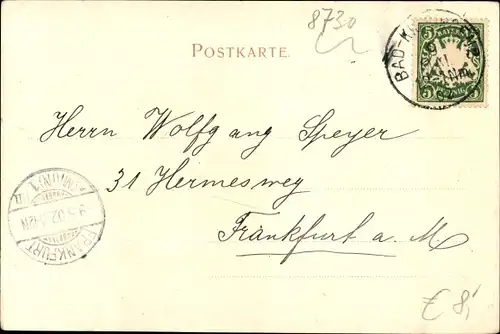 8730
POSTKARTE.
BAD-
5 BAYERN 5
5 PFENNIG 5
Herrn Wolfgang Speyer
31 Hermesweg
Frankfurt a. M
FRANKFURT (MAIN) 1
€ 8,